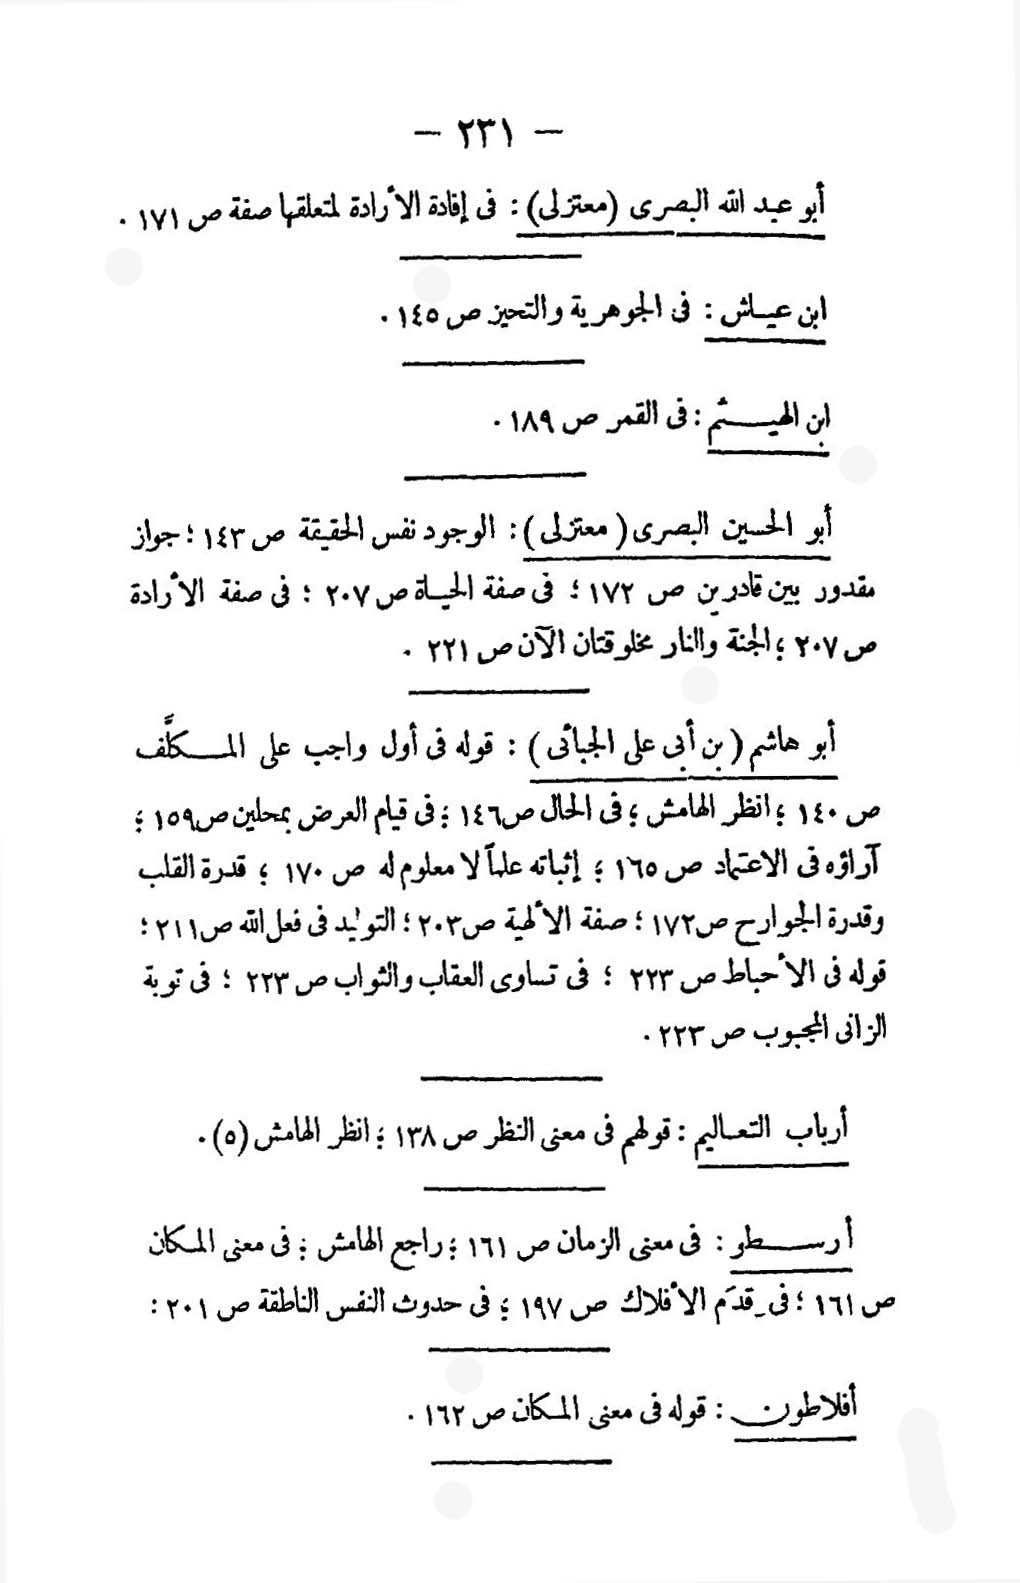 — ٢٣١ —
أبو عبد الله البصرى (معتزلى) : فى إفادة الأرادة لمتعلقها صفة ص ١٧١ .
ابن عياش : فى الجوهرية والتحيز ص ١٤٥ .
ابن الهيثم : فى القمر ص ١٨٩ .
أبو الحسين البصرى ( معتزلى ) : الوجود نفس الحقيقة ص ١٤٣ ؛ جواز
مقدور بين قادرين ص ١٧٢ ؛ فى صفة الحياة ص ٢٠٧ ؛ فى صفة الأرادة
ص ٢٠٧ ؛ الجنة والنار مخلوقتان الآن ص ٢٢١ .
أبو هاشم ( بن أبى على الجبائى ) : قوله فى أول واجب على المكلَّف
ص ١٤٠ ؛ انظر الهامش ؛ فى الحال ص ١٤٦ ؛ فى قيام العرض بمحلين ص ١٥٩ ؛
آراؤه فى الاعتماد ص ١٦٥ ؛ إثباته علماً لا معلوم له ص ١٧٠ ؛ قدرة القلب
وقدرة الجوارح ص ١٧٢ ؛ صفة الألهية ص ٢٠٣ ؛ التوليد فى فعل الله ص ٢١١ ؛
قوله فى الأحباط ص ٢٢٣ ؛ فى تساوى العقاب والثواب ص ٢٢٣ ؛ فى توبة
الزانى المجبوب ص ٢٢٣ .
أرباب التعاليم : قولهم فى معنى النظر ص ١٣٨ ؛ انظر الهامش (٥) .
أرسطو : فى معنى الزمان ص ١٦١ ؛ راجع الهامش ؛ فى معنى المكان
ص ١٦١ ؛ فى قِدَم الأفلاك ص ١٩٧ ؛ فى حدوث النفس الناطقة ص ٢٠١ :
أفلاطون : قوله فى معنى المكان ص ١٦٢ .